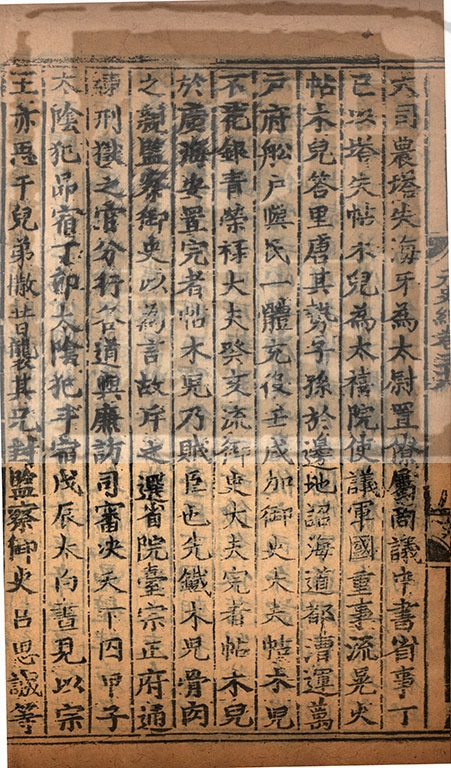 大司農塔失海牙為太尉置僚屬商議中書省事丁
巳以塔失帖木兒為太禧院使議軍國重事流晃火
帖木兒答里唐其勢子孫於邊地詔海道都漕運萬
戶府舩戶與民一體充役壬戌加御史大夫帖木兒
不花銀青榮祿大夫癸亥流御史大夫完者帖木兒
於廣海安置完者帖木兒乃賊臣也先鐵木兒骨肉
之親監察御史以為言故斥之選省院臺宗正府通
練刑獄之官分行各道與廉訪司審决天下囚甲子
太陰犯昴宿丁卯太陰犯斗宿戊辰太白晝見以宗
王亦思干兒弟撒昔襲其兄封監察御史呂思誠等